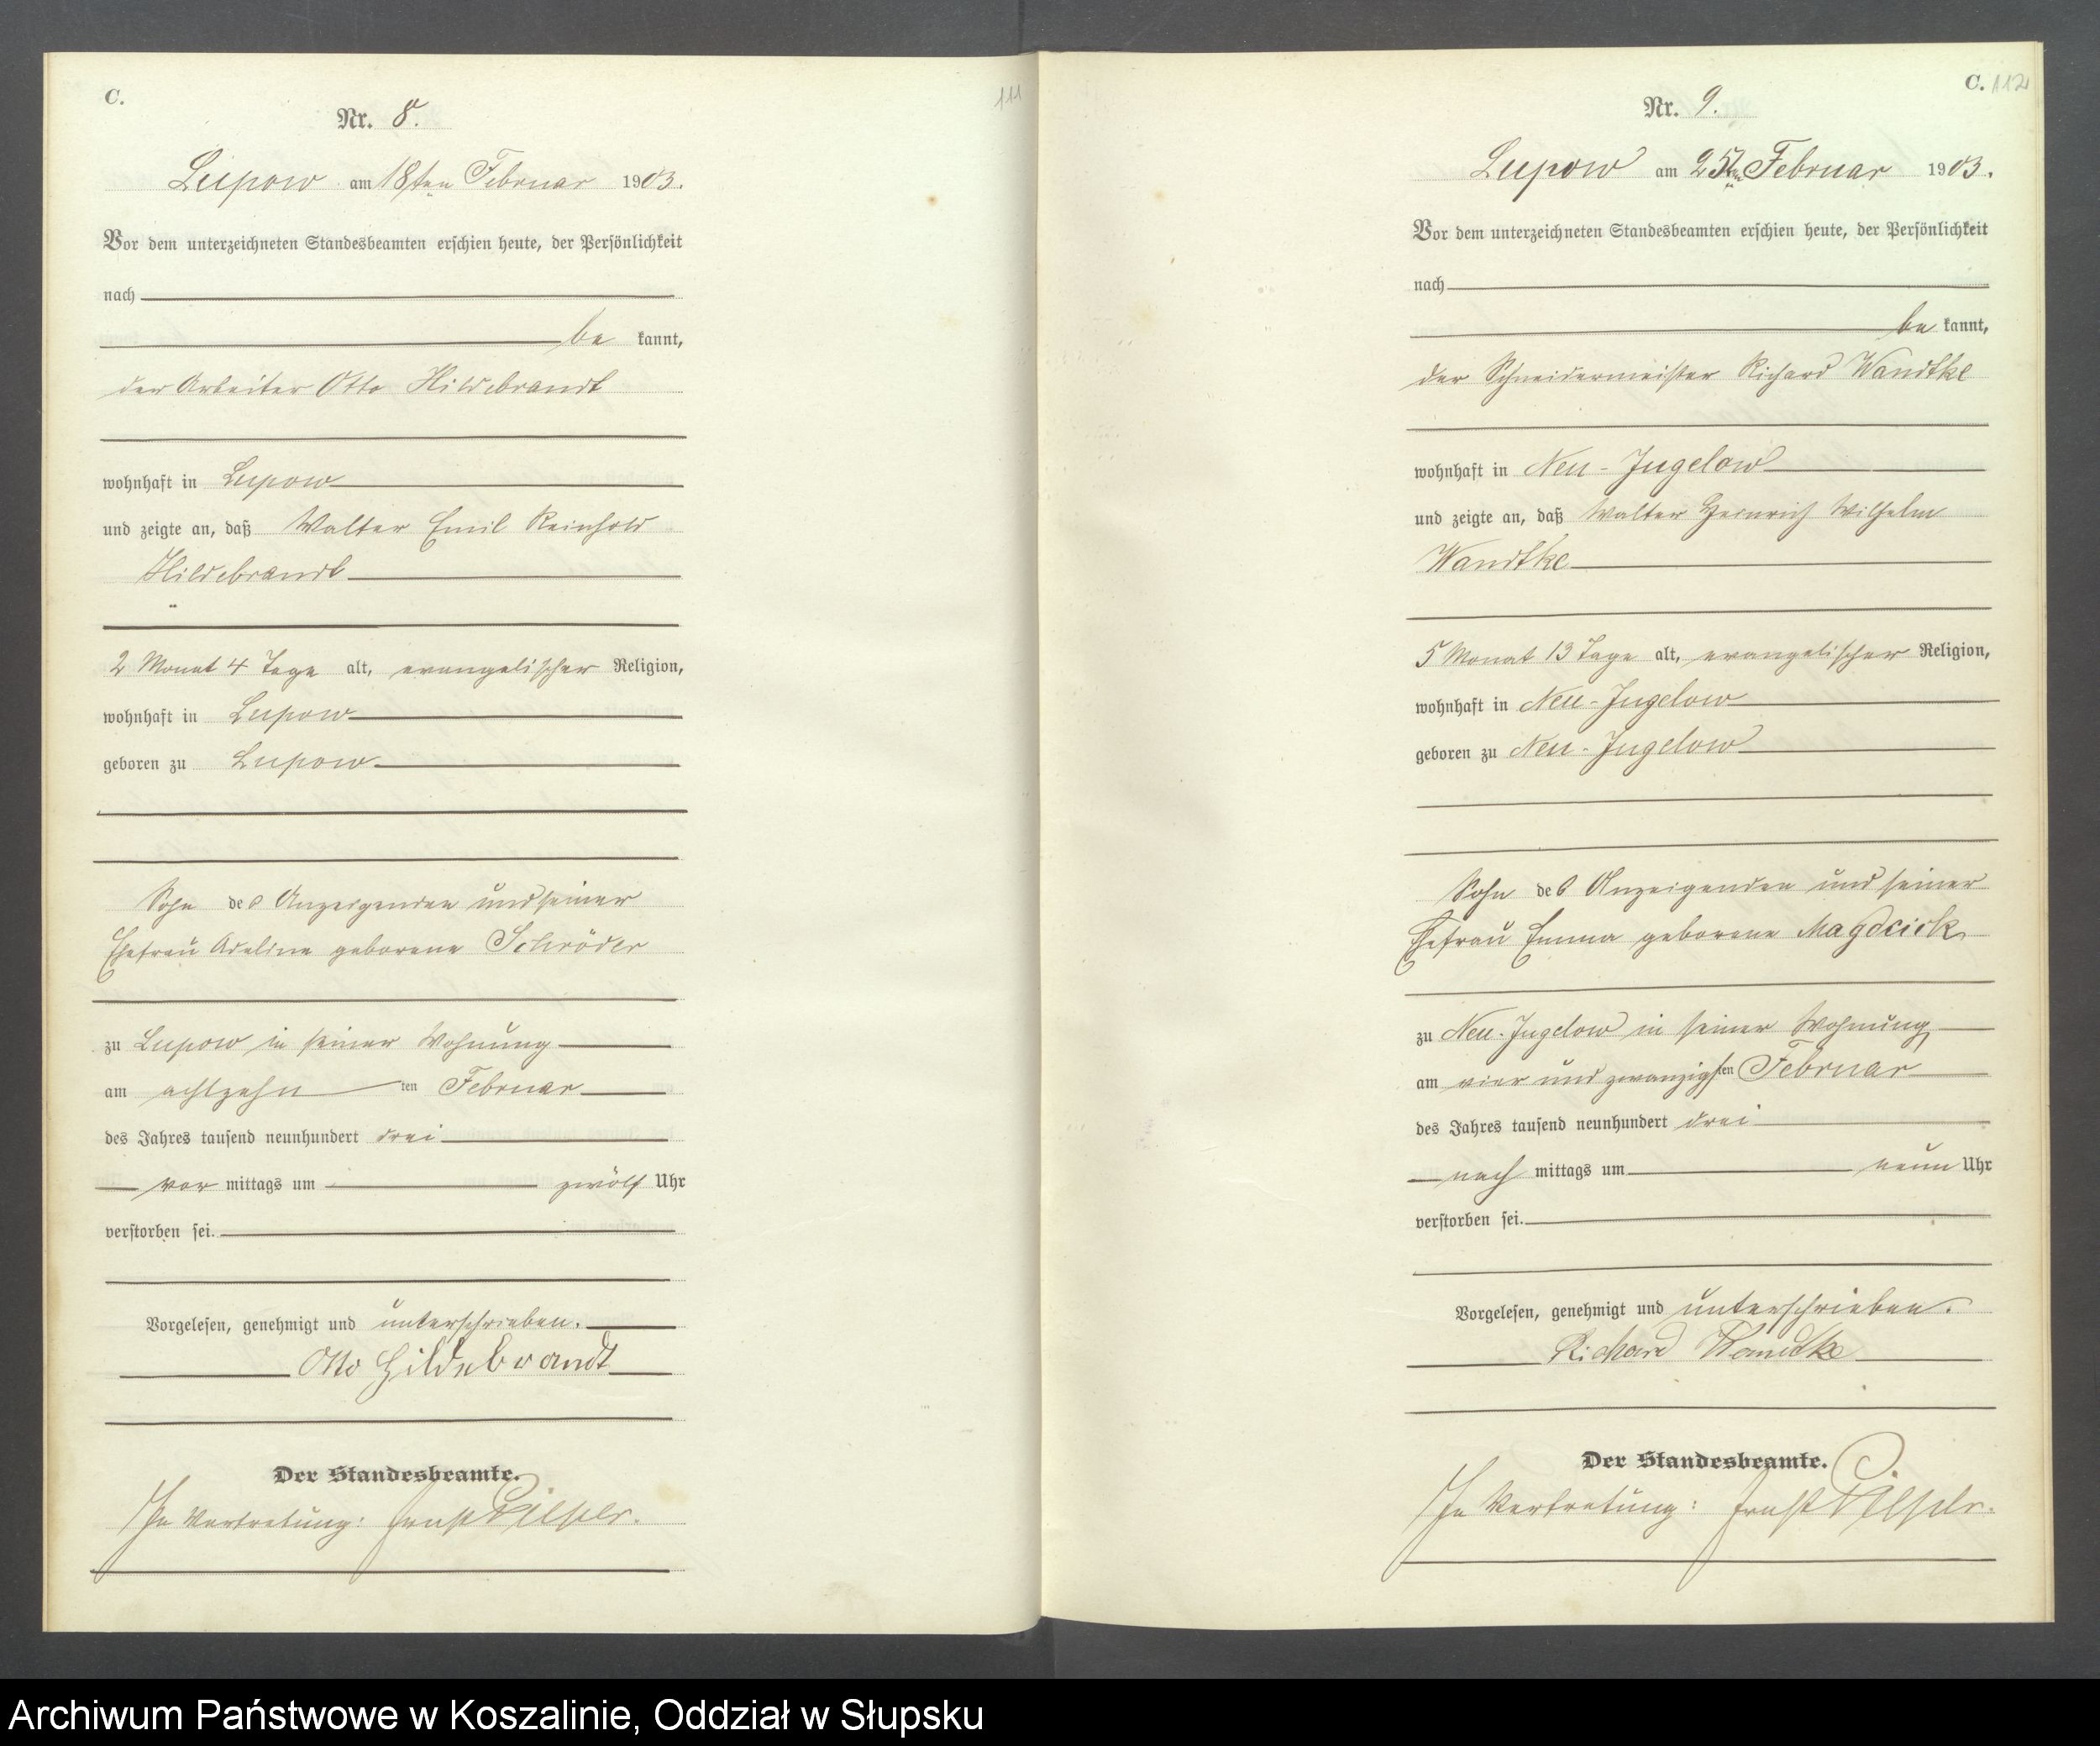 C.
111
Nr. 8.
Lupow am 18ten Februar 1903.
Vor dem unterzeichneten Standesbeamten erschien heute, der Persönlichkeit
nach
be kannt,
der Arbeiter Otto Hildebrandt
wohnhaft in Lupow
und zeigte an, daß Walter Emil Reinhold
Hildebrandt
2 Monat 4 Tage alt, evangelischer Religion,
wohnhaft in Lupow
geboren zu Lupow
Sohn des Anzeigenden und seiner
Ehefrau Adeline geborene Schröder
zu Lupow in seiner Wohnung
am achtzehn ten Februar
des Jahres tausend neunhundert drei
vor mittags um zwölf Uhr
verstorben sei.
Vorgelesen, genehmigt und unterschrieben.
Otto Hildebrandt
Der Standesbeamte.
In Vertretung: Ernst
C. 112
Nr. 9.
Lupow am 25ten Februar 1903.
Vor dem unterzeichneten Standesbeamten erschien heute, der Persönlichkeit
nach
be kannt,
der Schneidermeister Richard Wandtke
wohnhaft in Neu-Jugelow
und zeigte an, daß Walter Heinrich Wilhelm
Wandtke
5 Monat 13 Tage alt, evangelischer Religion,
wohnhaft in Neu-Jugelow
geboren zu Neu-Jugelow
Sohn des Anzeigenden und seiner
Ehefrau Emma geborene
zu Neu-Jugelow in seiner Wohnung
am vier und zwanzigsten Februar
des Jahres tausend neunhundert drei
nach mittags um neun Uhr
verstorben sei.
Vorgelesen, genehmigt und unterschrieben.
Richard Wandtke
Der Standesbeamte.
In Vertretung: Ernst
Archiwum Państwowe w Koszalinie, Oddział w Słupsku